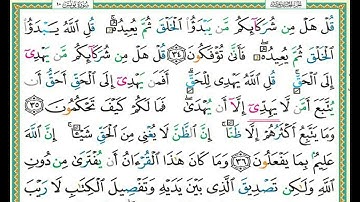 قُلْ هَلْ مِن شُرَكَآئِكُم مَّن يَبْدَؤُا۟ ٱلْخَلْقَ ثُمَّ يُعِيدُهُۥ ۚ قُلِ ٱللَّهُ يَبْدَؤُا۟
ٱلْخَلْقَ ثُمَّ يُعِيدُهُۥ ۖ فَأَنَّىٰ تُؤْفَكُونَ ٣٤ قُلْ هَلْ مِن شُرَكَآئِكُم مَّن يَهْدِىٓ
إِلَى ٱلْحَقِّ ۚ قُلِ ٱللَّهُ يَهْدِى لِلْحَقِّ ۗ أَفَمَن يَهْدِىٓ إِلَى ٱلْحَقِّ أَحَقُّ أَن
يُتَّبَعَ أَمَّن لَّا يَهِدِّىٓ إِلَّآ أَن يُهْدَىٰ ۖ فَمَا لَكُمْ كَيْفَ تَحْكُمُونَ ٣٥
وَمَا يَتَّبِعُ أَكْثَرُهُمْ إِلَّا ظَنًّا ۚ إِنَّ ٱلظَّنَّ لَا يُغْنِى مِنَ ٱلْحَقِّ شَيْـًٔا ۚ إِنَّ ٱللَّهَ
عَلِيمٌۢ بِمَا يَفْعَلُونَ ٣٦ وَمَا كَانَ هَٰذَا ٱلْقُرْءَانُ أَن يُفْتَرَىٰ مِن دُونِ
ٱللَّهِ وَلَٰكِن تَصْدِيقَ ٱلَّذِى بَيْنَ يَدَيْهِ وَتَفْصِيلَ ٱلْكِتَٰبِ لَا رَيْبَ